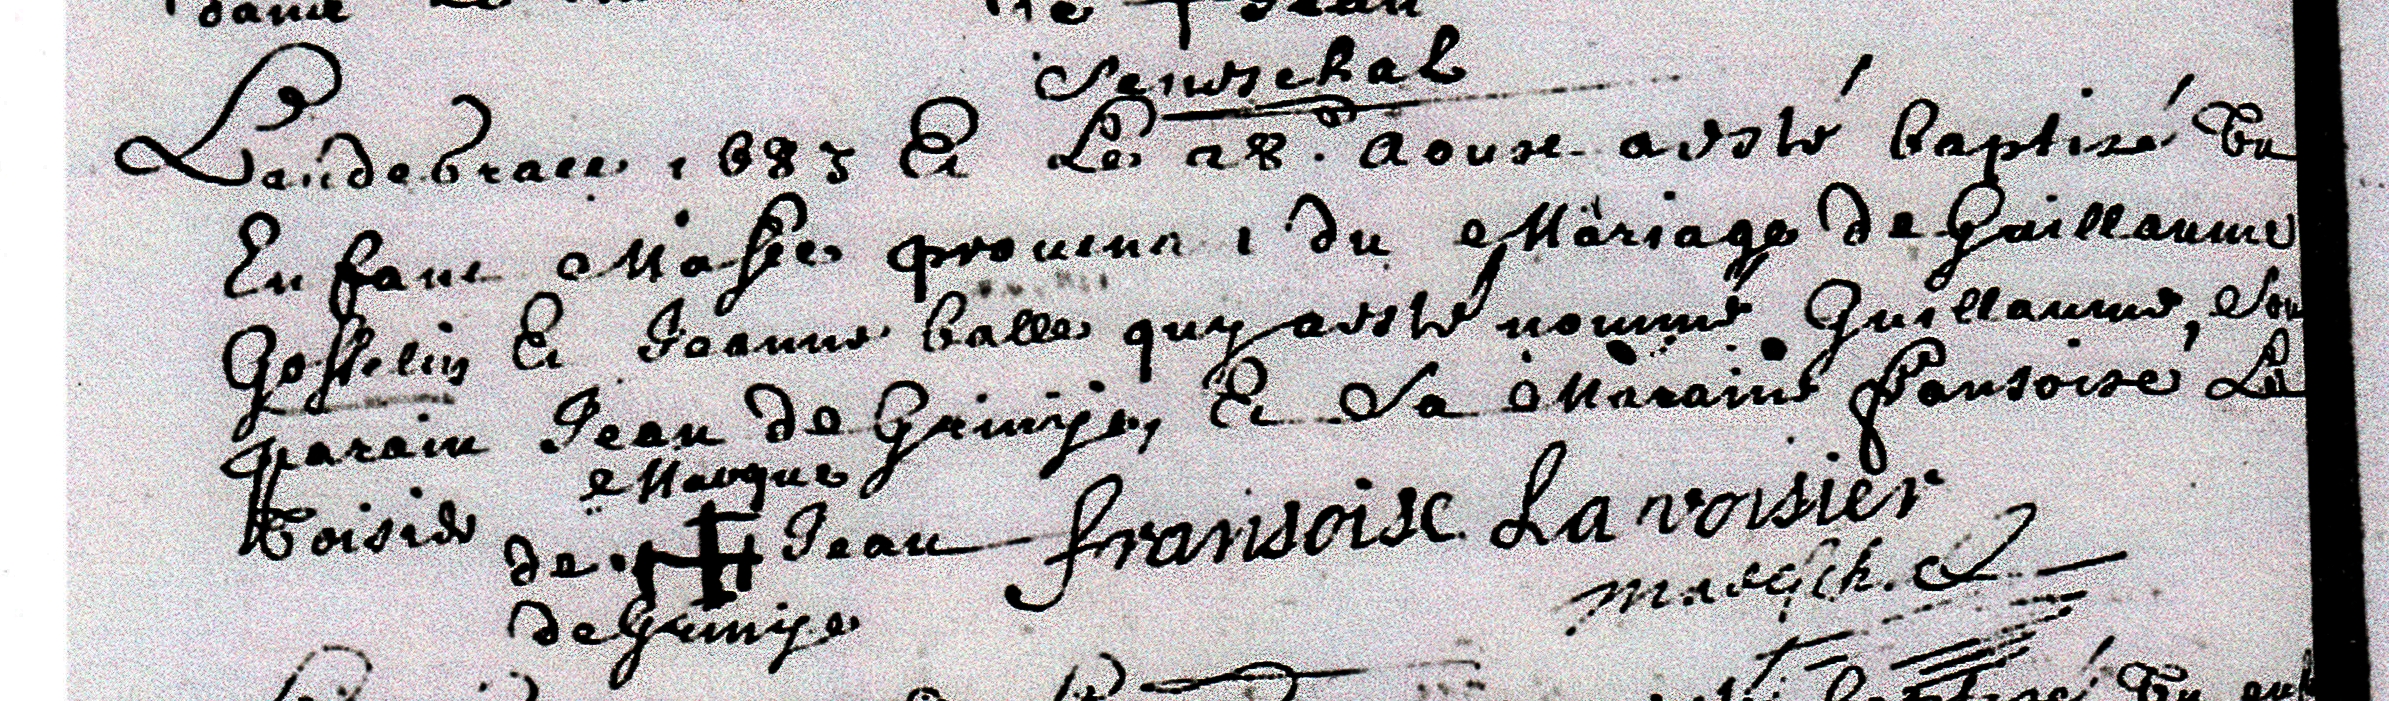 Jean
Seneschal
Landegrace 1683 Et Le 28. Aoust a esté baptizé Un
Enfant Masle provena t du Mariage de Guillaume
Gosselin Et Jeanne balle quy a esté nommé Guillaume, Son
parain Jean de Grinije, Et Sa Maraine fransoise La
Voisier
Marque
de Jean fransoise La voisier
de Grinije
baptizé Un enf